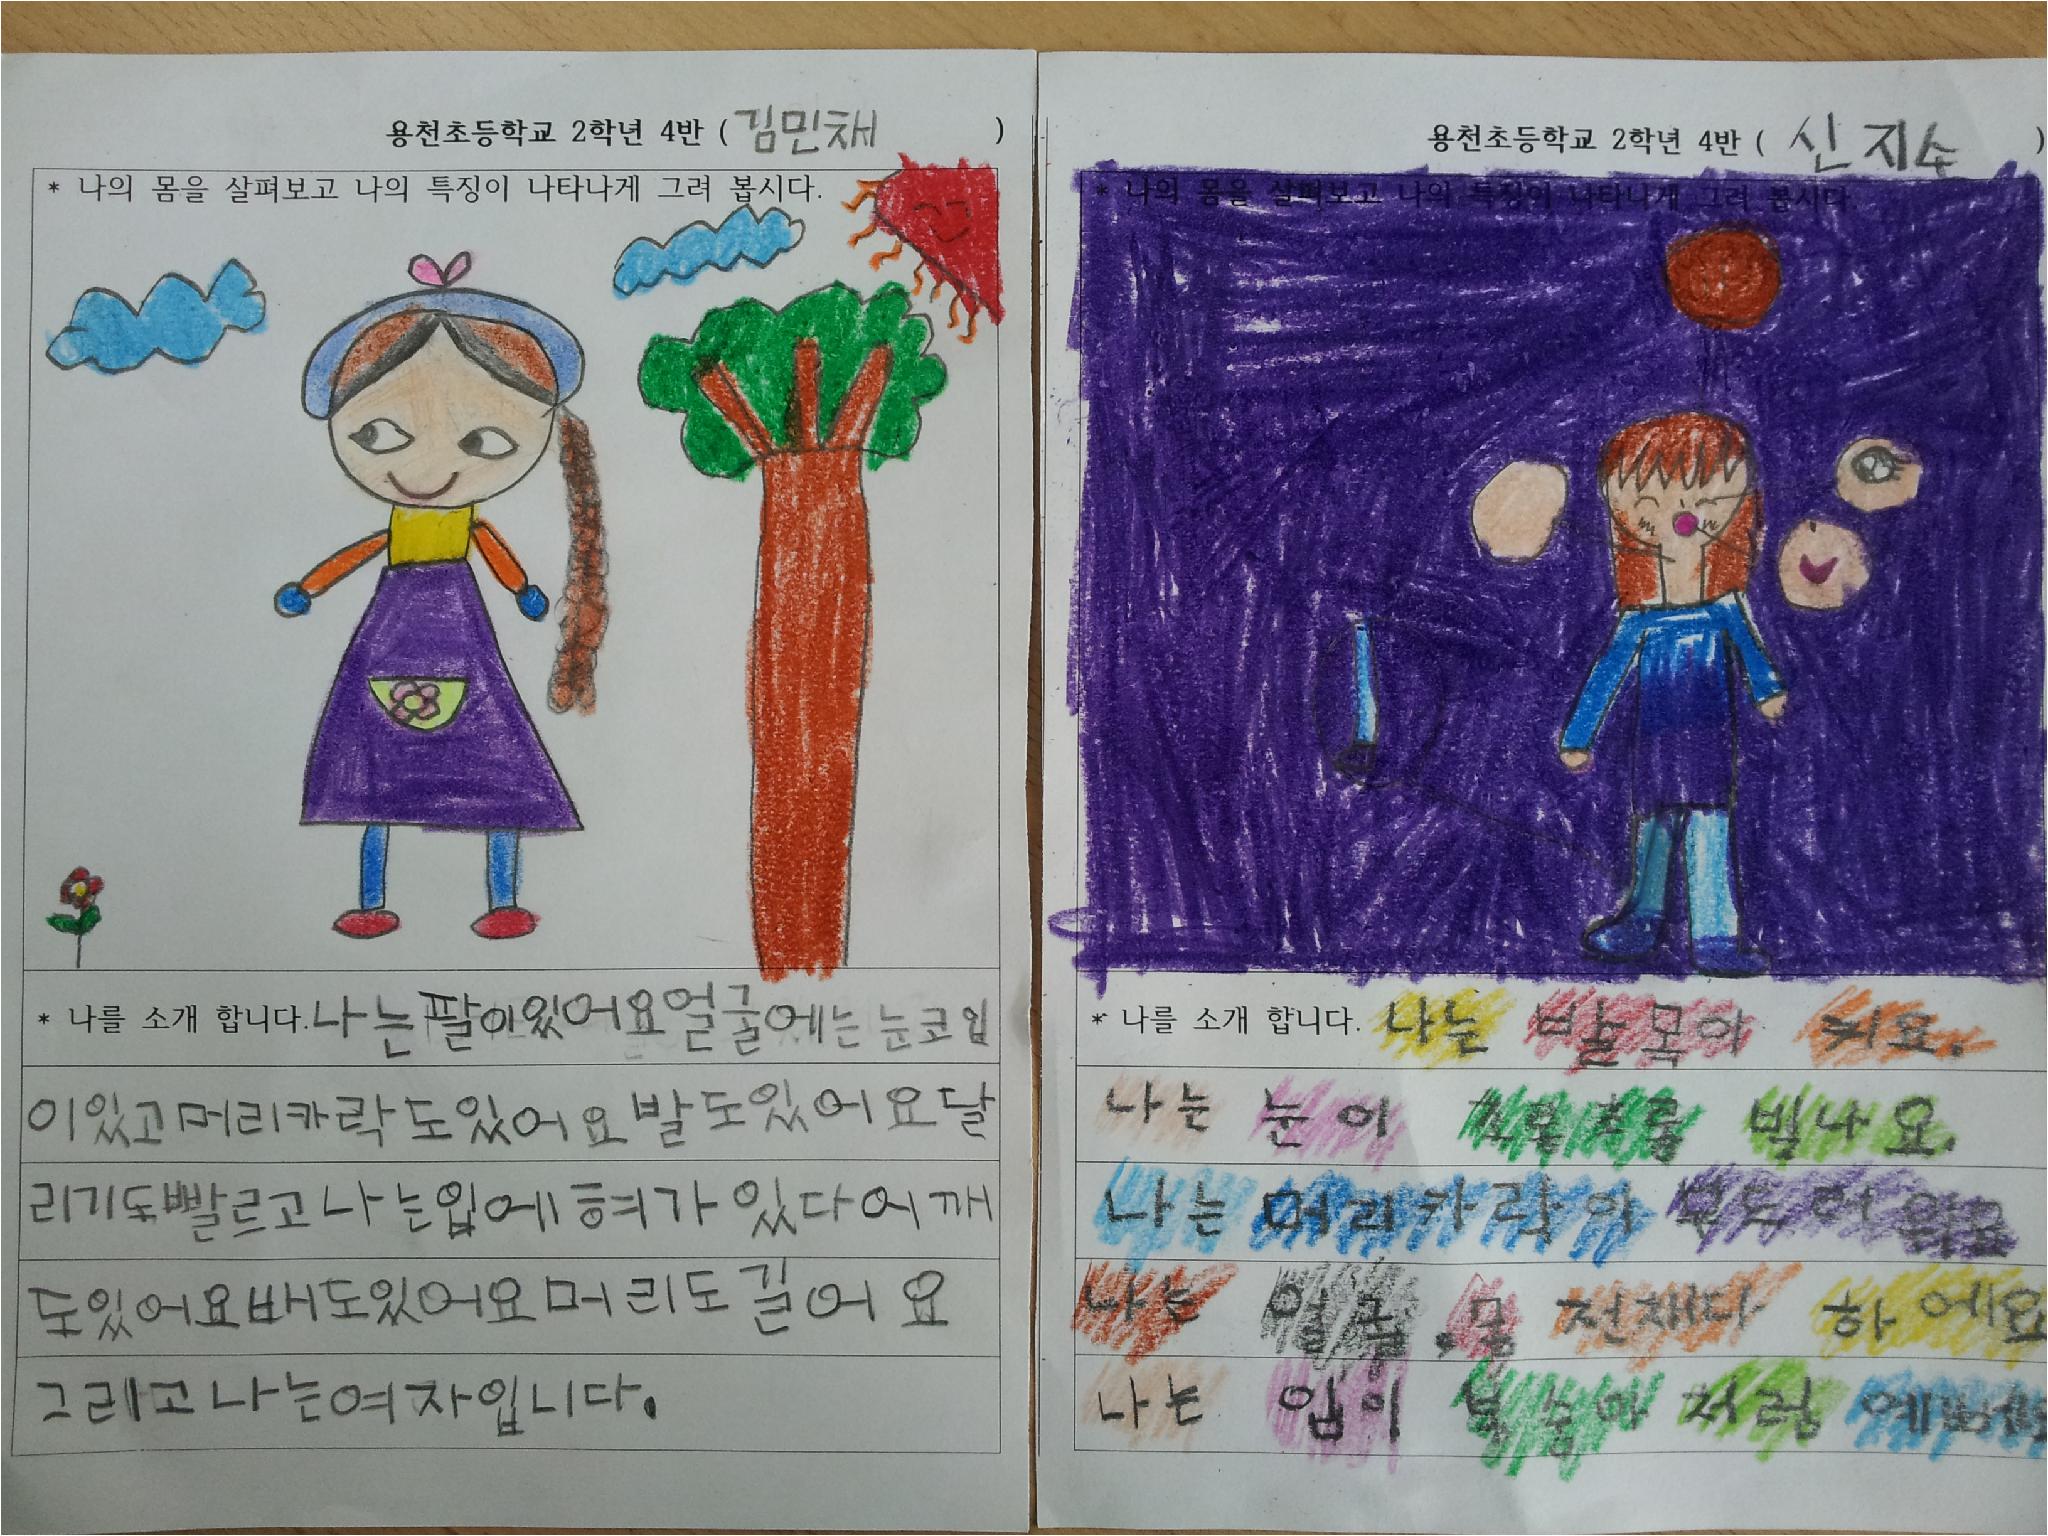 용천초등학교 2학년 4반 ( 김민채 )
* 나의 몸을 살펴보고 나의 특징이 나타나게 그려 봅시다.
* 나를 소개 합니다. 나는 팔이있어요얼굴에는 눈코입
이있고머리카락도있어요발도있어요달
리기도빨르고나는입에혀가있다어깨
도있어요배도있어요머리도길어요
그레고나는여자입니다.
용천초등학교 2학년 4반 ( 신지수 )
* 나의 몸을 살펴보고 나의 특징이 나타나게 그려 봅시다.
* 나를 소개 합니다. 나는 발목이
나는 눈이 빛나요.
나는 머리카락이
나는 얼굴. 몸 전채다 하얘요
나는 입이 처럼